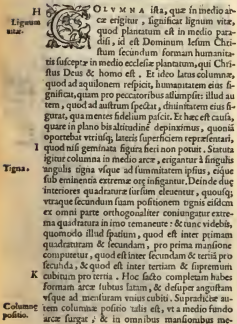 H
Lignum
vitæ.
COLVMNA ista, quæ in medio ar-
cæ erigitur, significat lignum vitæ,
quod plantatum est in medio para-
disi, id est Dominum Iesum Chri-
stum secundum formam humanita-
tis susceptæ in medio ecclesiæ plantatum, qui Chri-
stus Deus & homo est. Et ideo latus columnæ,
quod ad aquilonem respicit, humanitatem eius si-
gnificat, quam pro peccatoribus assumpsit: illud au
tem, quod ad austrum spectat, diuinitatem eius fi-
gurat, qua mentes fidelium pascit. Et hæc est causa,
quare in plano bis altitudine depinximus, quoniā
oportebat vtrinsq; lateris superficiem repræsentari,
I
quod nisi geminata figura fieri non potuit. Statuta
igitur columna in medio arcæ, erigantur à singulis
Tigna.
angulis tigna vsque ad summitatem ipsius, eique
sub eminentia extremæ orę insigantur, Deinde duę
interiores quadraturæ sursum eleuentur, quousq;
vtraque secundum suam positionem tignis eisdem
ex omni parte orthogonaliter coniungatur extre-
ma quadratura in imo remanente: & tunc videbis,
quomodo illud spatium, quod est inter primam
quadraturam & secundam, pro prima mansione
computetur, quod est inter secundā & tertiā pro
secūda, & quod est inter tertiam & supremum
K
cubitum pro tertia. Hoc facto completam habes
formam arcæ subtus latam, & desuper angustam
vsque ad mensuram vnius cubiti. Supradictæ au-
Columnę
positio.
tem columnæ positio talis est, vt a medio fundo
arcæ surgat, & in omnibus mansionibus me-